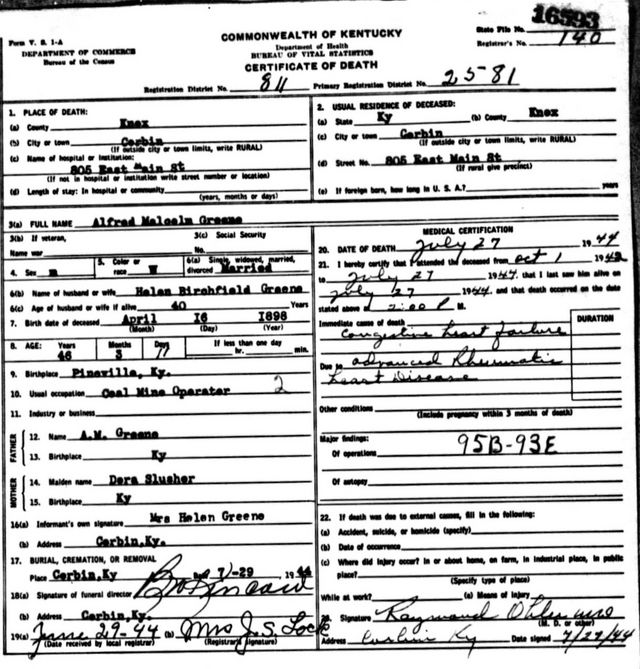 16593
Form V. S. 1-A
DEPARTMENT OF COMMERCE
Bureau of the Census
COMMONWEALTH OF KENTUCKY
Department of Health
BUREAU OF VITAL STATISTICS
CERTIFICATE OF DEATH
State File No.
Registrar's No. 140
Registration District No. 811 Primary Registration District No. 2581
1. PLACE OF DEATH:
(a) County Knox
(b) City or town Corbin
(If outside city or town limits, write RURAL)
(c) Name of hospital or institution:
805 East Main St
(If not in hospital or institution write street number or location)
(d) Length of stay: In hospital or community
(years, months or days)
2. USUAL RESIDENCE OF DECEASED:
(a) State Ky (b) County Knox
(c) City or town Corbin
(If outside city or town limits, write RURAL)
(d) Street No. 805 East Main St
(If rural give precinct)
(e) If foreign born, how long in U. S. A.? years
3(a) FULL NAME Alfred Malcolm Greene
3(b) If veteran,
Name war
3(c) Social Security
No.
4. Sex m
5. Color or
race W
6(a) Single, widowed, married,
divorced Married
6(b) Name of husband or wife Helen Birchfield Greene
6(c) Age of husband or wife if alive 40 Years
7. Birth date of deceased April 16 1898
(Month) (Day) (Year)
8. AGE: Years Months Days If less than one day
46 3 11 hr. min.
9. Birthplace Pineville, Ky.
10. Usual occupation Coal Mine Operator 2
11. Industry or business
FATHER
12. Name A.M. Greene
13. Birthplace Ky
MOTHER
14. Maiden name Dora Slusher
15. Birthplace Ky
16(a) Informant's own signature Mrs Helen Greene
(b) Address Corbin,Ky.
17. BURIAL, CREMATION, OR REMOVAL
Place Corbin,Ky 7/-29 1944
18(a) Signature of funeral director
(b) Address Corbin,Ky.
19(a) June 29-44 (b) Mrs J. S. Lock
(Date received by local registrar) (Registrar's signature)
MEDICAL CERTIFICATION
20. DATE OF DEATH July 27 1944
21. I hereby certify that I attended the deceased from Oct 1 1942
to July 27 1944, that I last saw him alive on
July 27 1944, and that death occurred on the date
stated above at 2:00 P M.
Immediate cause of death
Congestive heart failure
DURATION
Due to advanced Rheumatic
heart Disease
Other conditions
(Include pregnancy within 3 months of death)
Major findings:
Of operations 95B-93E
Of autopsy
22. If death was due to external causes, fill in the following:
(a) Accident, suicide, or homicide (specify)
(b) Date of occurrence
(c) Where did injury occur? In or about home, on farm, in industrial place, in public
place?
(Specify type of place)
While at work? (e) Means of Injury
23. Signature Raymond
(M. D. or other)
Address Corbin Ky Date signed 7/27/44